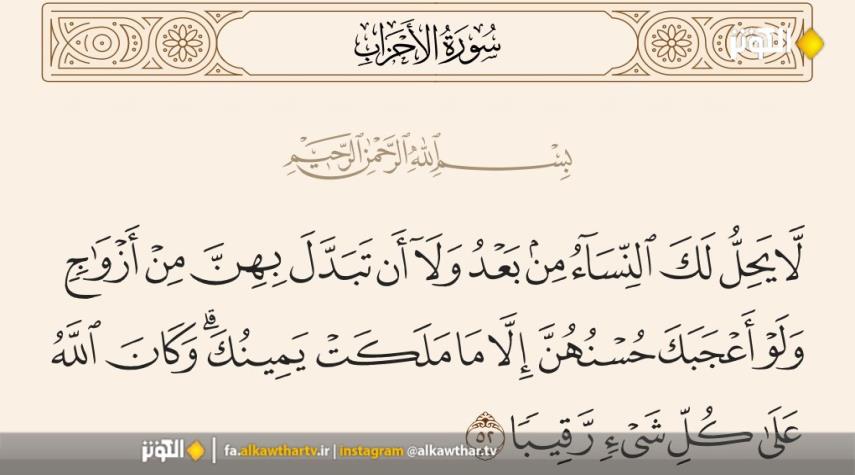 سُورَةُ الأَحْزَابِ
الكوثر
بِسْمِ ٱللَّهِ ٱلرَّحْمَٰنِ ٱلرَّحِيمِ
لَّا يَحِلُّ لَكَ ٱلنِّسَآءُ مِنۢ بَعْدُ وَلَآ أَن تَبَدَّلَ بِهِنَّ مِنْ أَزْوَٰجٍ
وَلَوْ أَعْجَبَكَ حُسْنُهُنَّ إِلَّا مَا مَلَكَتْ يَمِينُكَ ۗ وَكَانَ ٱللَّهُ
عَلَىٰ كُلِّ شَىْءٍ رَّقِيبًا ٥٢
الكوثر | fa.alkawthartv.ir | instagram @alkawthar.tv